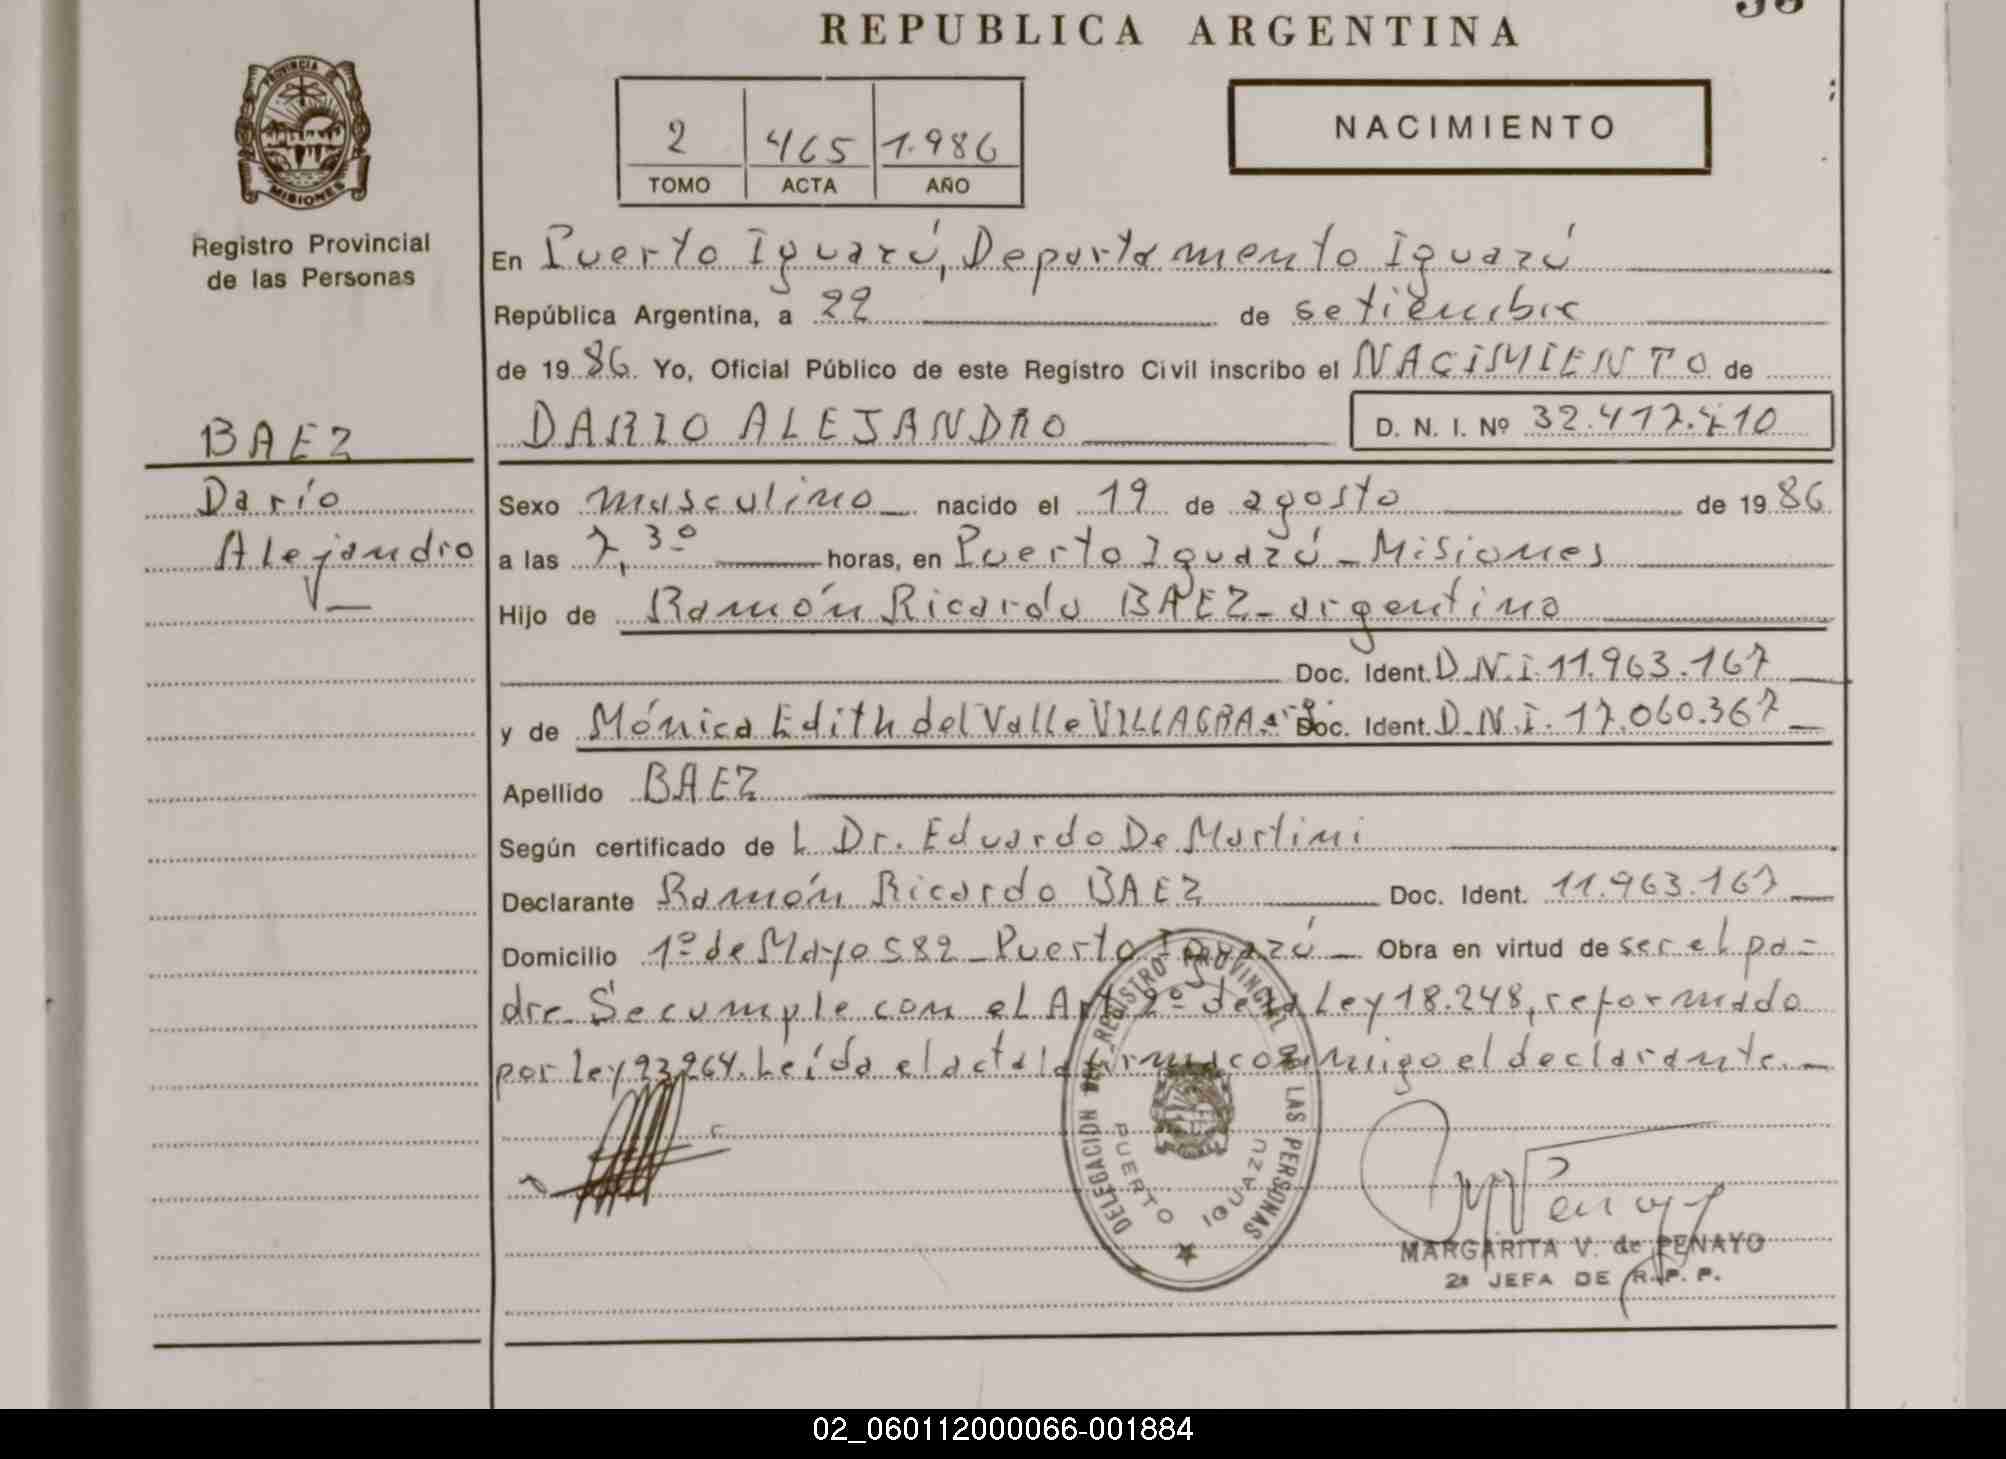 REPUBLICA ARGENTINA
PROVINCIA DE
MISIONES
Registro Provincial
de las Personas
2 465 1.986
TOMO ACTA AÑO
NACIMIENTO
En Puerto Iguazú, Departamento Iguazú
República Argentina, a 22 de setiembre
de 1986. Yo, Oficial Público de este Registro Civil inscribo el NACIMIENTO de
BAEZ
DARIO ALEJANDRO D. N. I. Nº 32.417.710
Darío
Alejandro
Sexo masculino nacido el 19 de agosto de 1986
a las 7,30 horas, en Puerto Iguazú - Misiones
Hijo de Ramón Ricardo BAEZ - argentino
Doc. Ident. D.N.I. 11.963.167
y de Mónica Edith del Valle VILLAGRA - arg. Doc. Ident. D.N.I. 17.060.367
Apellido BAEZ
Según certificado de L Dr. Eduardo De Martini
Declarante Ramón Ricardo BAEZ Doc. Ident. 11.963.167
Domicilio 1º de Mayo 582 - Puerto Iguazú - Obra en virtud de ser el pa=
dre. Se cumple con el Art 2º de la Ley 18.248, reformado
por Ley 23.264. Leída el acta la firma conmigo el declarante. -
DELEGACION DEL REGISTRO PROVINCIAL DE LAS PERSONAS
PUERTO IGUAZU
MARGARITA V. de PENAYO
2ª JEFA DE R. P. P.
02_060112000066-001884